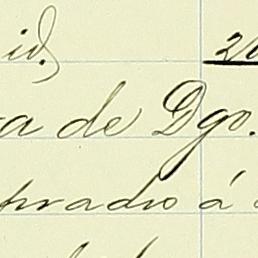 id. 20
a de Dgo.
prado á